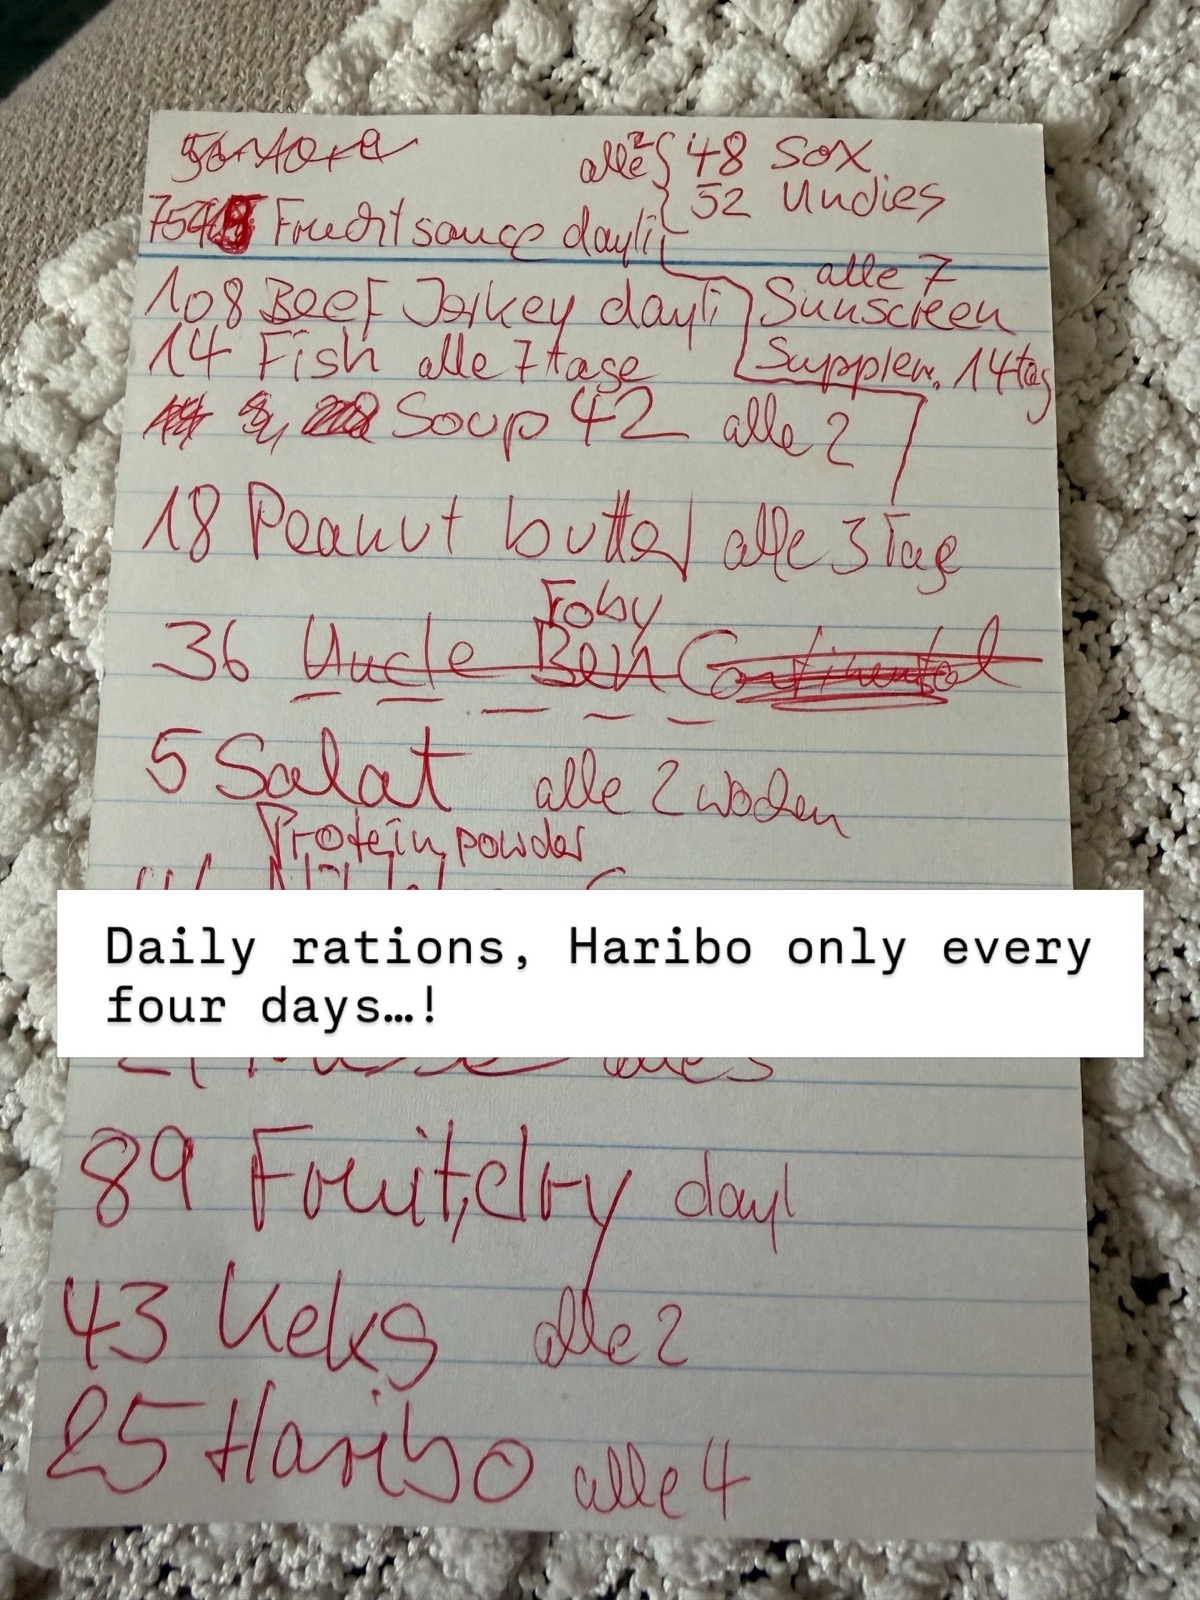 alle 2 { 48 Sox
52 Undies
Frucht sauce dayli
108 Beef Jerkey dayli
alle 7
Sunscreen
14 Fish alle 7 tage
Supplem. 14 tag
Soup 42 alle 2
18 Peanut butter alle 3 Tage
Foby
36 Uncle Ben Continental
5 Salat alle 2 wochen
Protein powder
Daily rations, Haribo only every
four days...!
89 Fruit, dry dayl
43 Keks alle 2
25 Haribo alle 4